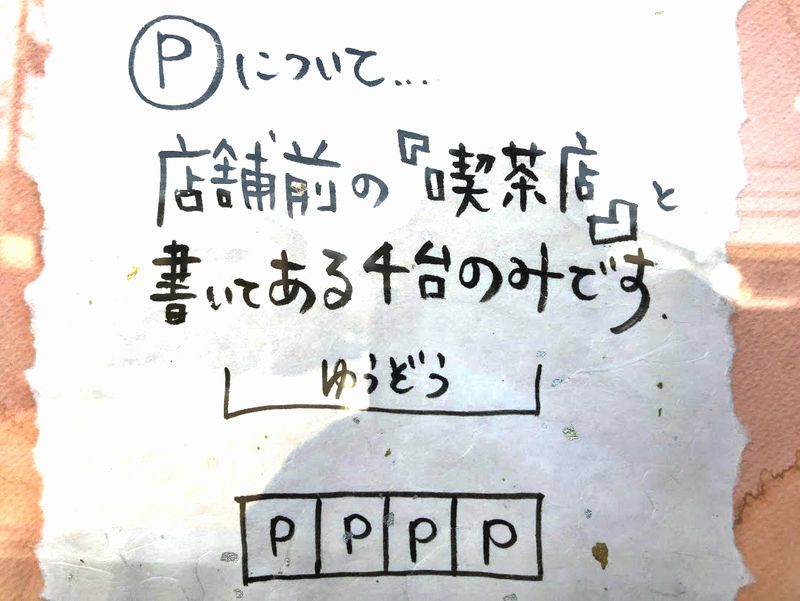 Ⓟについて...
店舗前の『喫茶店』と
書いてある4台のみです.
ゆうぞう
P P P P